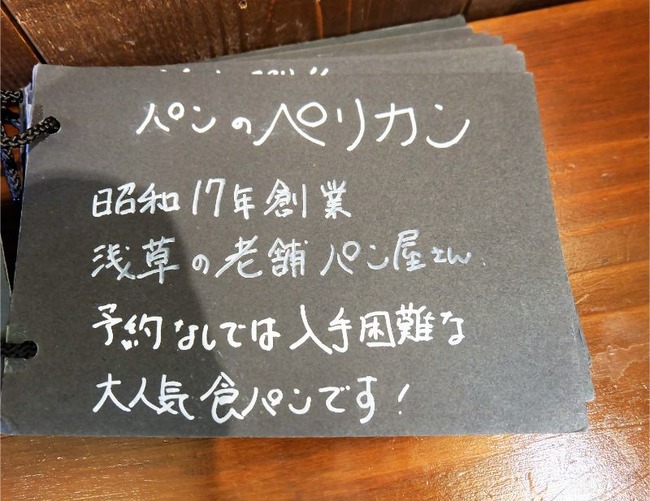 パンのペリカン
昭和17年創業
浅草の老舗パン屋さん
予約なしでは入手困難な
大人気食パンです!